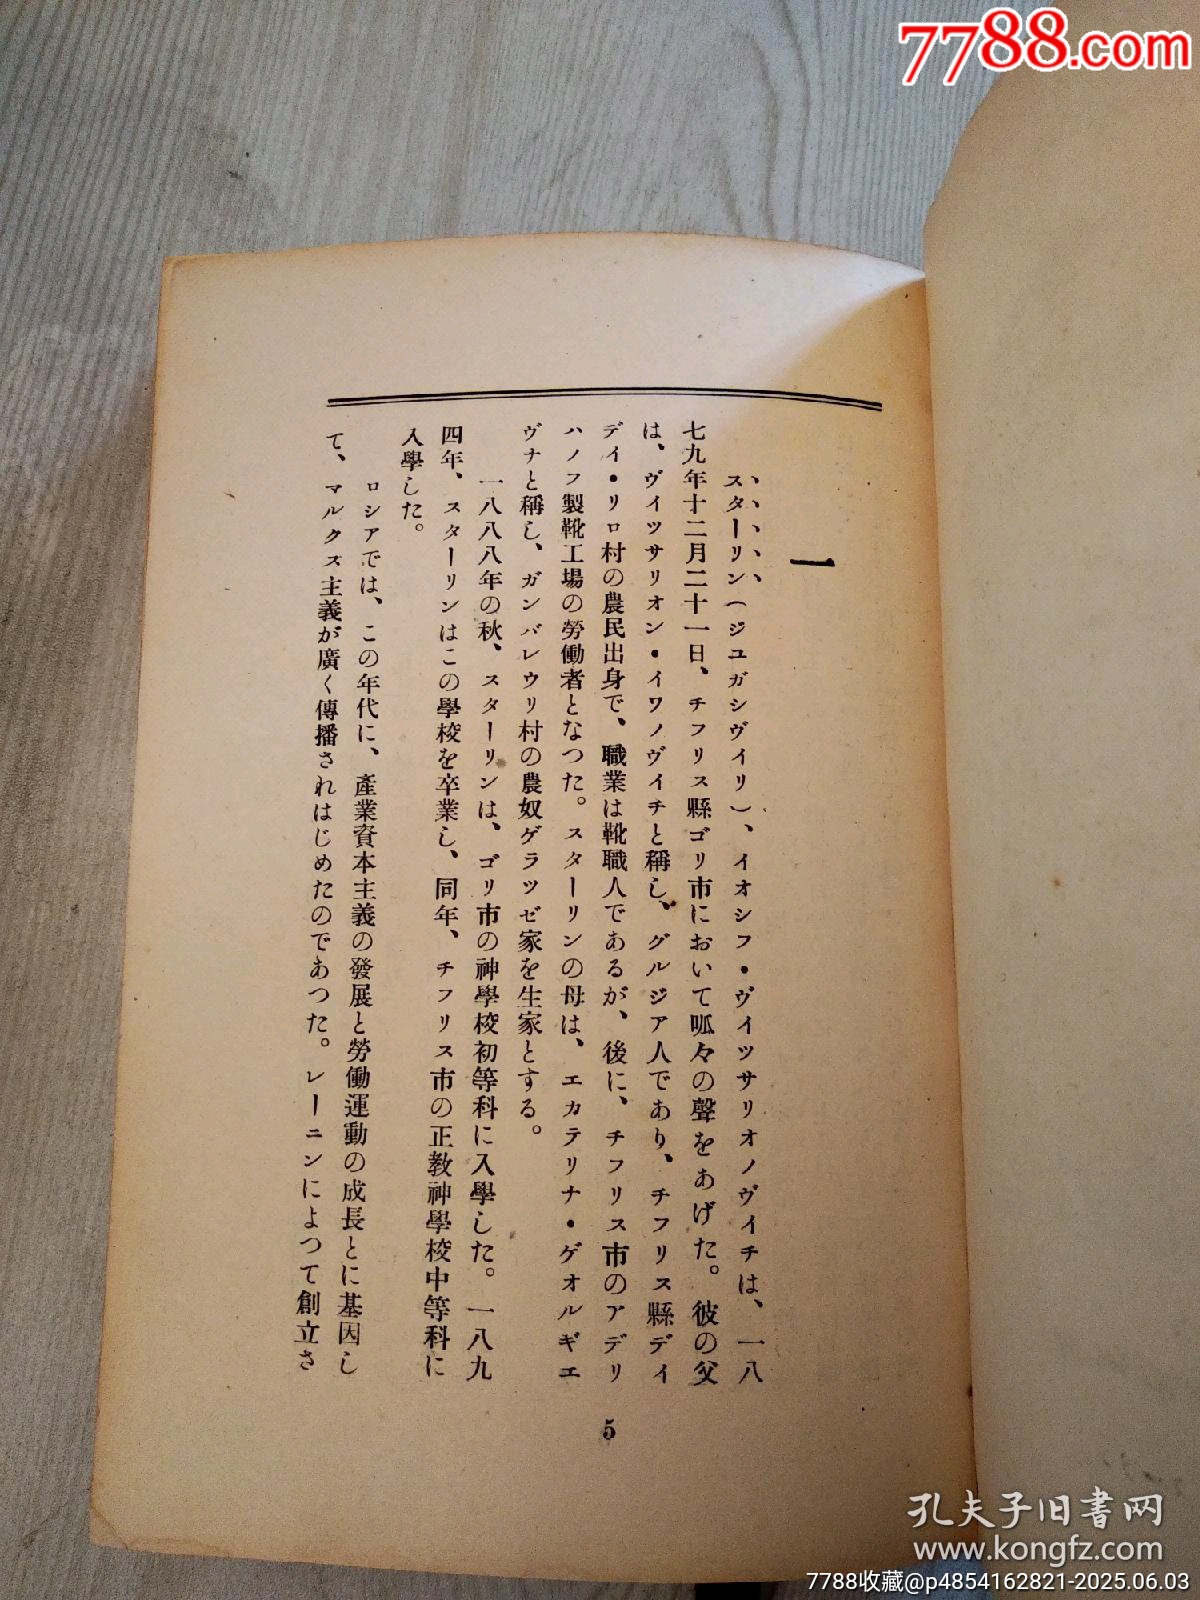 7788.com
一
スターリン(ジユガシヴイリ)、イオシフ・ヴイツサリオノヴイチは、一八
七九年十二月二十一日、チフリス縣ゴリ市において呱々の聲をあげた。彼の父
は、ヴイツサリオン・イワノヴイチと稱し、グルジア人であり、チフリス縣デイ
デイ・リロ村の農民出身で、職業は靴職人であるが、後に、チフリス市のアデリ
ハノフ製靴工場の勞働者となつた。スターリンの母は、エカテリナ・ゲオルギエ
ヴナと稱し、ガンバレウリ村の農奴ゲラツゼ家を生家とする。
一八八八年の秋、スターリンは、ゴリ市の神學校初等科に入學した。一八九
四年、スターリンはこの學校を卒業し、同年、チフリス市の正教神學校中等科に
入學した。
ロシアでは、この年代に、產業資本主義の發展と勞働運動の成長とに基因し
て、マルクス主義が廣く傳播されはじめたのであつた。レーニンによつて創立さ
5
孔夫子旧书网
www.kongfz.com
7788收藏@p4854162821-2025.06.03